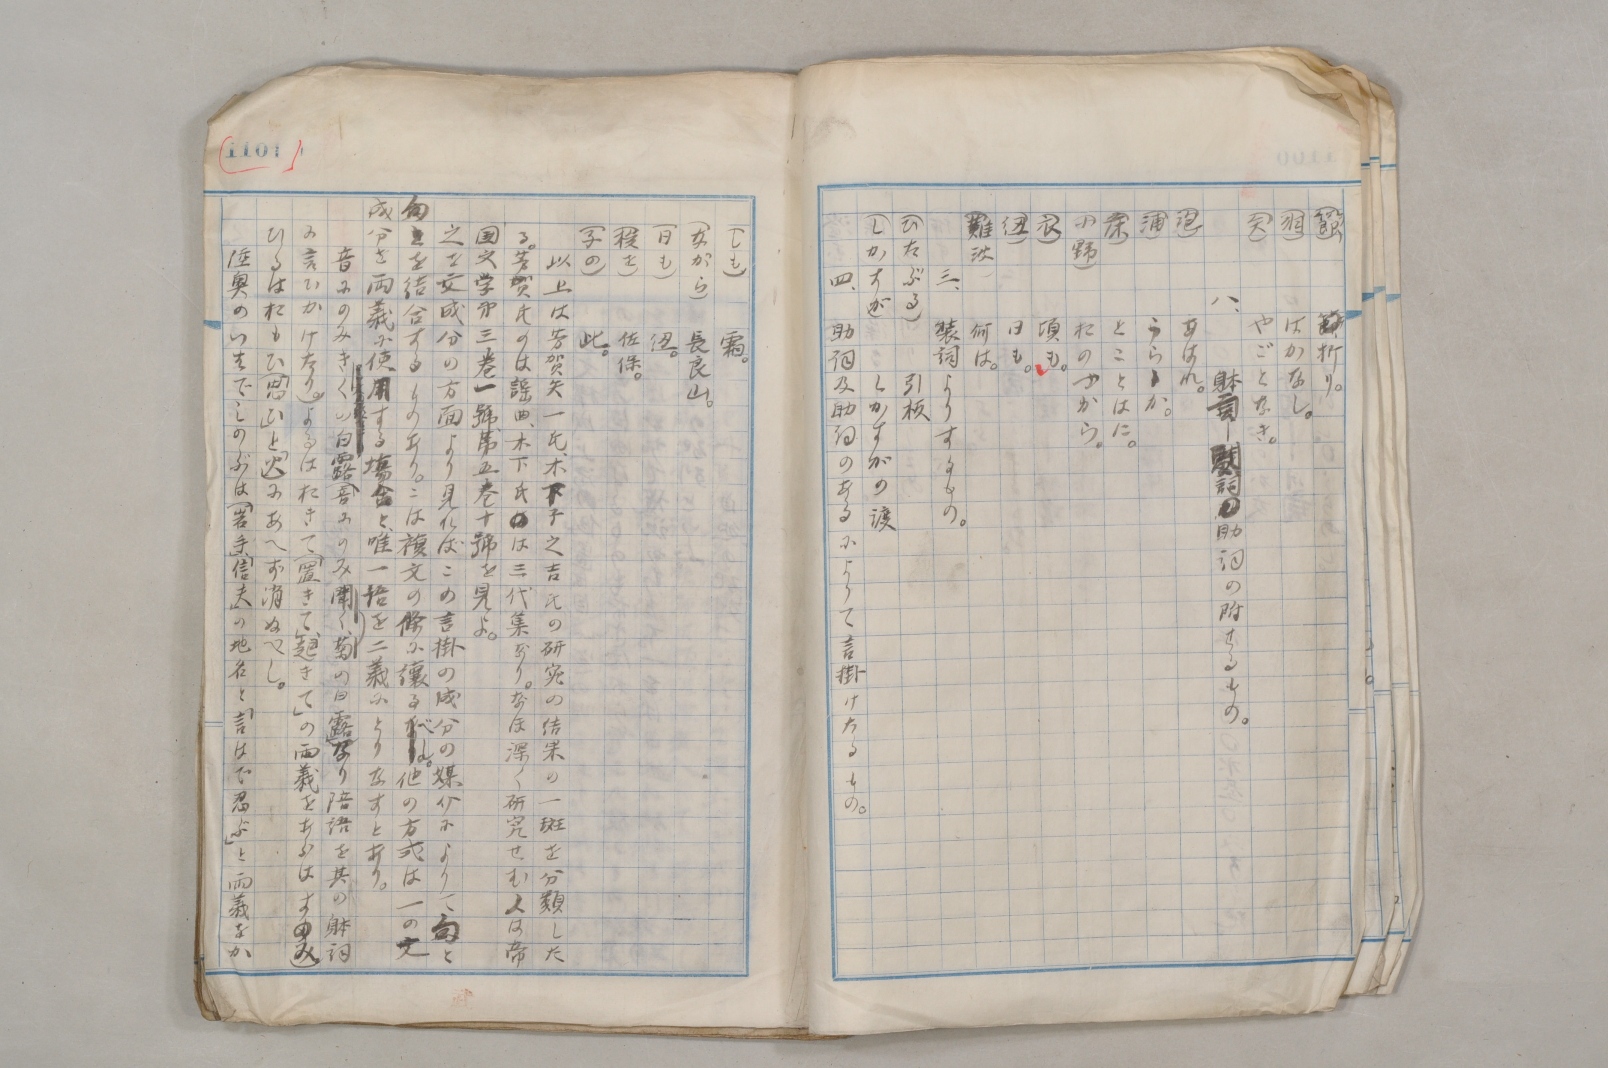 節折り。
(羽) はかなし。
(矢) やごとなき。
八、 躰詞の助詞の附せるもの。
(泡) あはれ。
(浦) うらか。
(床) とことはに。
(小野) おのづから。
(衣) 頃も。
(紐) 日も。
(難波) 何は。
三、 装詞よりするもの。
(ひたぶる) 引板
(しかすが) しかすがの渡
四、 助詞及助詞のあるによりて言掛けたるもの。
1101
(しも) 霜。
(ながら) 長良山。
(日も) 紐。
(程を) 佐保。
(子の) 此。
以上は芳賀矢一氏、木下子之吉氏の研究の結果の一斑を分類した
る。芳賀氏のは謡曲、木下氏のは三代集なり。なほ深く研究せむ人は帝
国文学第三巻一號第五巻十號を見よ。
之を文成分の方面より見れば、この言掛の成分の媒介によりて句と
句とを結合するものあり。こは複文の條に讓るべし。他の方式は一の文
成分を両義に使用する塲合と、唯一語を二義にとりなすとあり。
音にのみきくの白露音にのみ聞く、菊の白露なり陪語を其の躰詞
に言ひかけたり。よるはおきて「置きて、起きて」の両義をあらはす(のみ)
ひるはおもひ「思ひ」と「火」にあへず消ぬべし。
陸奥のいはでしのぶは「岩手、信夫」の地名と「言はで忍ぶ」と両義をか